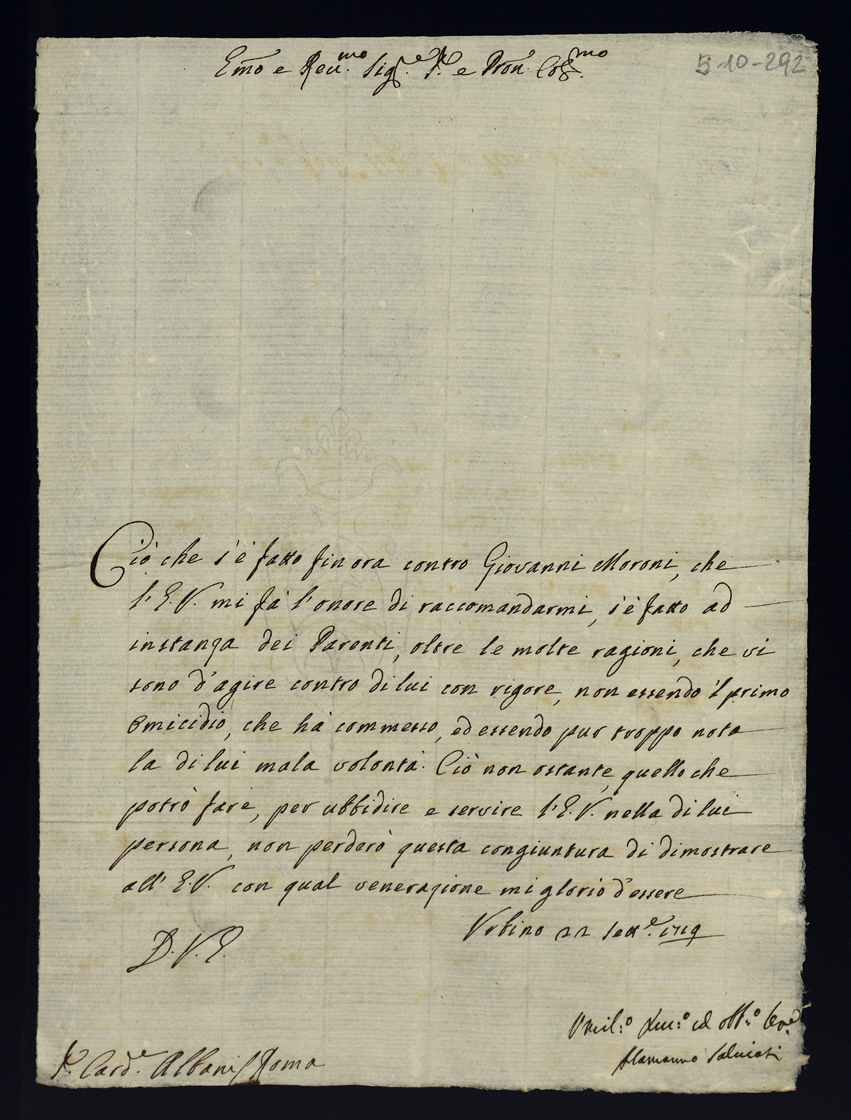 Em̃o e Reu.mo Sig.e P.e e Pron̄ Col.mo
5-10-292
Ciò che s'è fatto fin ora contro Giovanni Moroni, che
l'E.V. mi fà l'onore di raccomandarmi, s'è fatto ad
instanza dei Parenti, oltre le molte ragioni, che vi
sono d'agire contro di lui con rigore, non essendo 'l primo
omicidio, che hà commesso, ed essendo pur troppo nota
la di lui mala volontà. Ciò non ostante, quello che
potrò fare, per ubbidire e servire l'E.V. nella di lui
persona, non perderò questa congiuntura di dimostrare
all'E.V. con qual venerazione mi glorio d'essere
Urbino 22 Sett.e 1719
D.V.E.
Umil.o Deu.o ed obb.o
Alamanno Salviati
S.r Card.e Albani / Roma